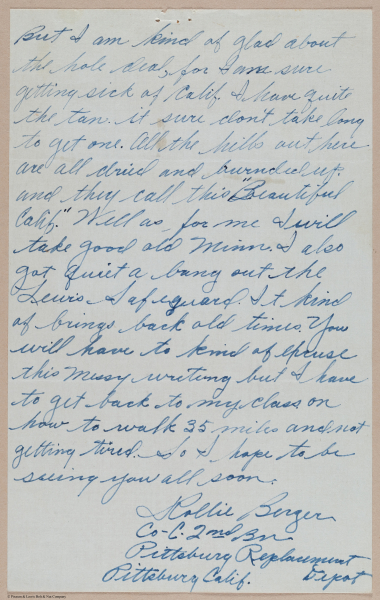 But I am kind of glad about
the hole deal, for I am sure
getting sick of Calif. I have quite
the tan. it sure don't take long
to get one. All the hills out here
are all dried and burnded up.
and they call this "Beautiful
Calif." Well as for me I will
take good old Minn. I also
got quiet a bang out the
Lewis Safeguard. It kind
of brings back old times. You
will have to kind of excuse
this Messy writing but I have
to get back to my class on
how to walk 35 miles and not
getting tired. So I hope to be
seeing you all soon.
Rollie Berger
Co-C. 2nd Bn
Pittsburg Replacement
Pittsburg Calif. Depot